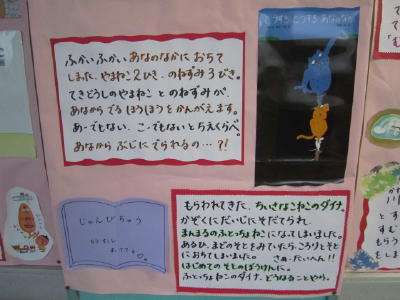 ふかいふかい あなのなかに おちて
しまた、やまねこ2ひき、のねずみ3びき。
てきどうしのやまねこ とのねずみが、
あなから でる ほうほうを かんがえます。
あーでもない、こーでもないとちえくらべ。
あなから ぶじに でられるの…?!
じゅんびちゅう
もらわれてきた、ちいさなこねこのダイナ。
かぞくにだいじにそだてられ、
まんまるのふとっちょねこになってしまいました。
あるひ、まどのそとをみていたら、ころりとそと
におちてしまいました。 さぁーたいへん!!
はじめてのそとのぼうけんに、
ふとっちょねこのダイナ、どうなることやら。